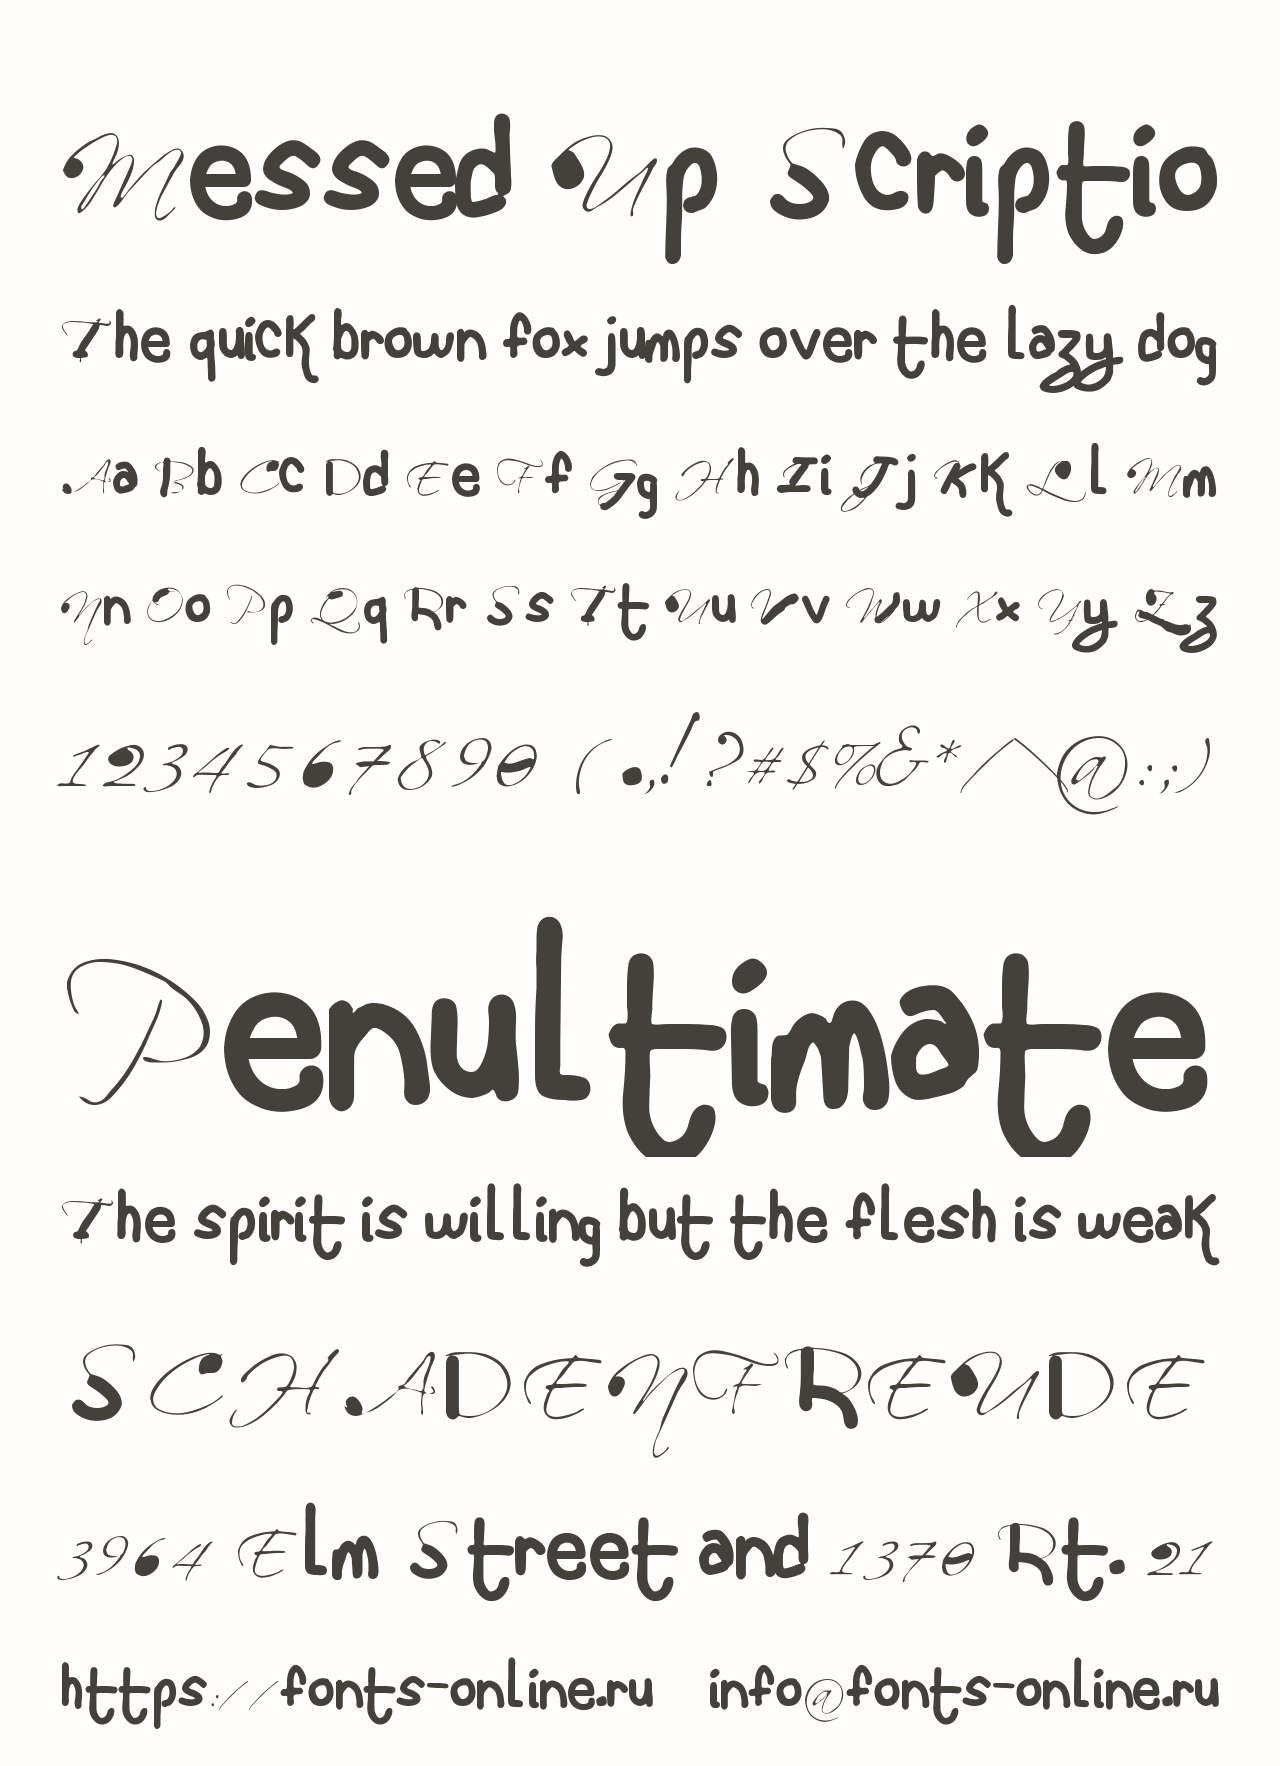 Messed Up Scriptio
The quick brown fox jumps over the lazy dog
Aa Bb Cc Dd Ee Ff Gg Hh Ii Jj Kk Ll Mm
Nn Oo Pp Qq Rr Ss Tt Uu Vv Ww Xx Yy Zz
1234567890 (.,!?#$%&*/\@:;)
Penultimate
The spirit is willing but the flesh is weak
SCHADENFREUDE
3964 Elm Street and 1370 Rt. 21
https://fonts-online.ru info@fonts-online.ru